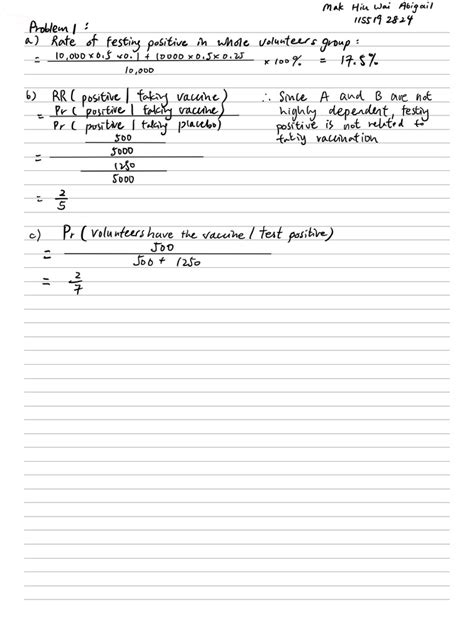 Mak Hiu Wai Abigail
1155192824
Problem 1 :
a) Rate of testing positive in whole volunteers group :
= 10,000 x 0.5 x 0.1 + 10000 x 0.5 x 0.25 / 10,000 x 100% = 17.5%
b) RR ( positive | taking vaccine )
= Pr ( positive | taking vaccine ) / Pr ( positive | taking placebo )
= 500 / 5000 / 1250 / 5000
= 2/5
∴ Since A and B are not
highly dependent, testing
positive is not related to
taking vaccination
c) Pr ( volunteers have the vaccine | test positive )
= 500 / 500 + 1250
= 2/7